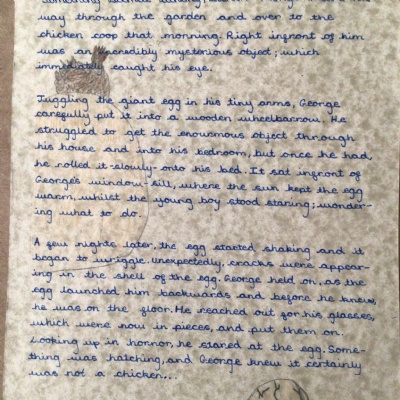 way through the garden and over to the
chicken coop that morning. Right infront of him
was an incredibly mysterious object; which
immediately caught his eye.
Juggling the giant egg in his tiny arms, George
carefully put it into a wooden wheelbarrow. He
struggled to get the enourmous object through
his house and into his bedroom, but once he had,
he rolled it-slowly-onto his bed. It sat infront of
George's window-sill, where the sun kept the egg
warm, whilst the young boy stood staring; wonder-
ing what to do.
A few nights later, the egg started shaking and it
began to wriggle. Unexpectedly, cracks were appear-
ing in the shell of the egg. George held on, as the
egg launched him backwards and before he knew,
he was on the floor. He reached out for his glasses,
which were now in pieces, and put them on.
Looking up in horror, he stared at the egg. Some-
thing was hatching, and George knew it certainly
was not a chicken...